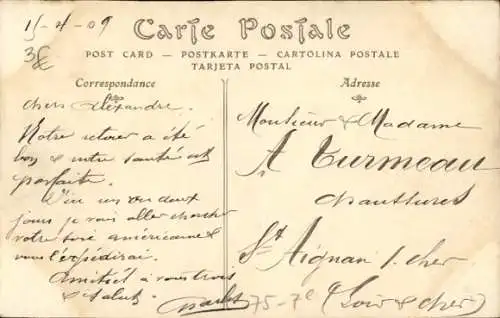 15-4-09
3€
Carte Postale
POST CARD — POSTKARTE — CARTOLINA POSTALE
TARJETA POSTAL
Correspondance
Chers Alexandre.
Notre retour a été
bon & notre santé est
parfaite.
D'ici un ou deux
jours je vais aller chercher
votre soie américaine &
vous l'expédirai.
Amitiés à vous trois
& Saluts
75-7e
Adresse
Monsieur & Madame
A Turmeau
chaussures
St Aignan s. cher
(Loir & cher)